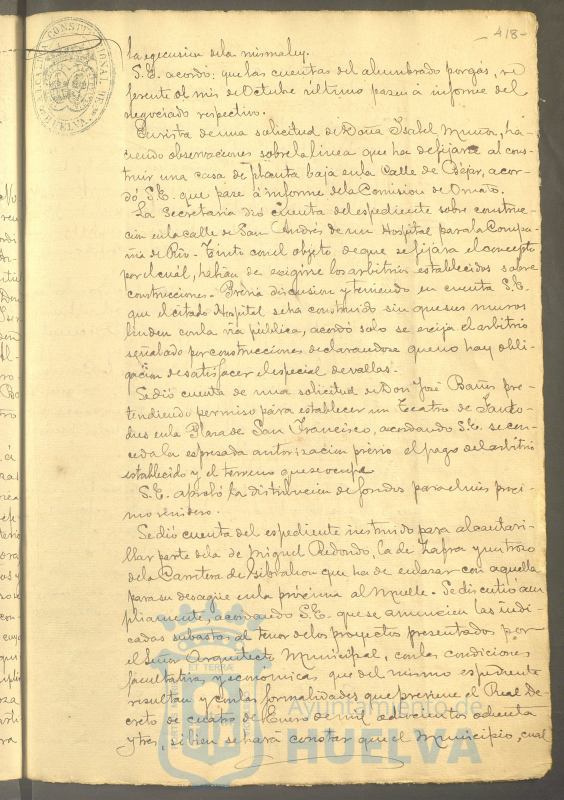 -418-
ALCALDIA CONSTITUCIONAL DE HUELVA
la egecusion dela misma ley.
S.E. acordó: que las cuentas del alumbrado por gás, re-
ferente al mes de Octubre último pasen á informe del
negociado respectivo.
En vista de una solicitud de Doña Isabel Munoz, ha-
ciendo observaciones sobre la linea que ha de fijarse al cons-
truir una casa de planta baja en la Calle de Bejar, acor-
dó S.E. que pase á informe dela Comision de Ornato.
La Secretaria dió cuenta del espediente sobre construc-
cion en la calle de San Andrés de un Hospital para la Compa-
ñia de Rio-Tinto con el objeto de que se fijara el concepto
por el cuál, habian de exigirse los arbitrios establecidos sobre
construcciones. Prévia discusion y teniendo en cuenta S.E.
que el citado Hospital se ha construido sin que sus muros
linden con la via pública, acordó solo se exija el arbitrio
señalado por construcciones declarandose que no hay obli-
gacion de satisfacer el especial de vallas.
Se dió cuenta de una solicitud de Don José Bañez pre-
tendiendo permiso para establecer un Teatro de
en la Plaza de San Francisco, acordando S.E. se con-
ceda la espresada autorizacion prévio el pago del arbitrio
establecido y el terreno que se ocupe
S.E. aprobó la distribucion de fondos para el mes próxi-
mo venidero.
Se dió cuenta del espediente instruido para alcantari-
llar parte dela de Miguel Redondo, la de Zafra y un trozo
dela Carretera de Gibraleon que ha de enlazar con aquella
para su desagüe en la próxima al Muelle. Se discutió am-
pliamente, acordando S.E. que se anuncien las indi-
cadas subastas al tenor delos proyectos presentados por
el Señor Arquitecto Municipal, con las condiciones
facultativas y economicas que del mismo espediente
resultan y con las formalidades que previene el Real De-
creto de cuatro de Enero de mil ochocientos ochenta
y tres, si bien se hará constar que el Municipio, cual
Ayuntamiento de
HUELVA